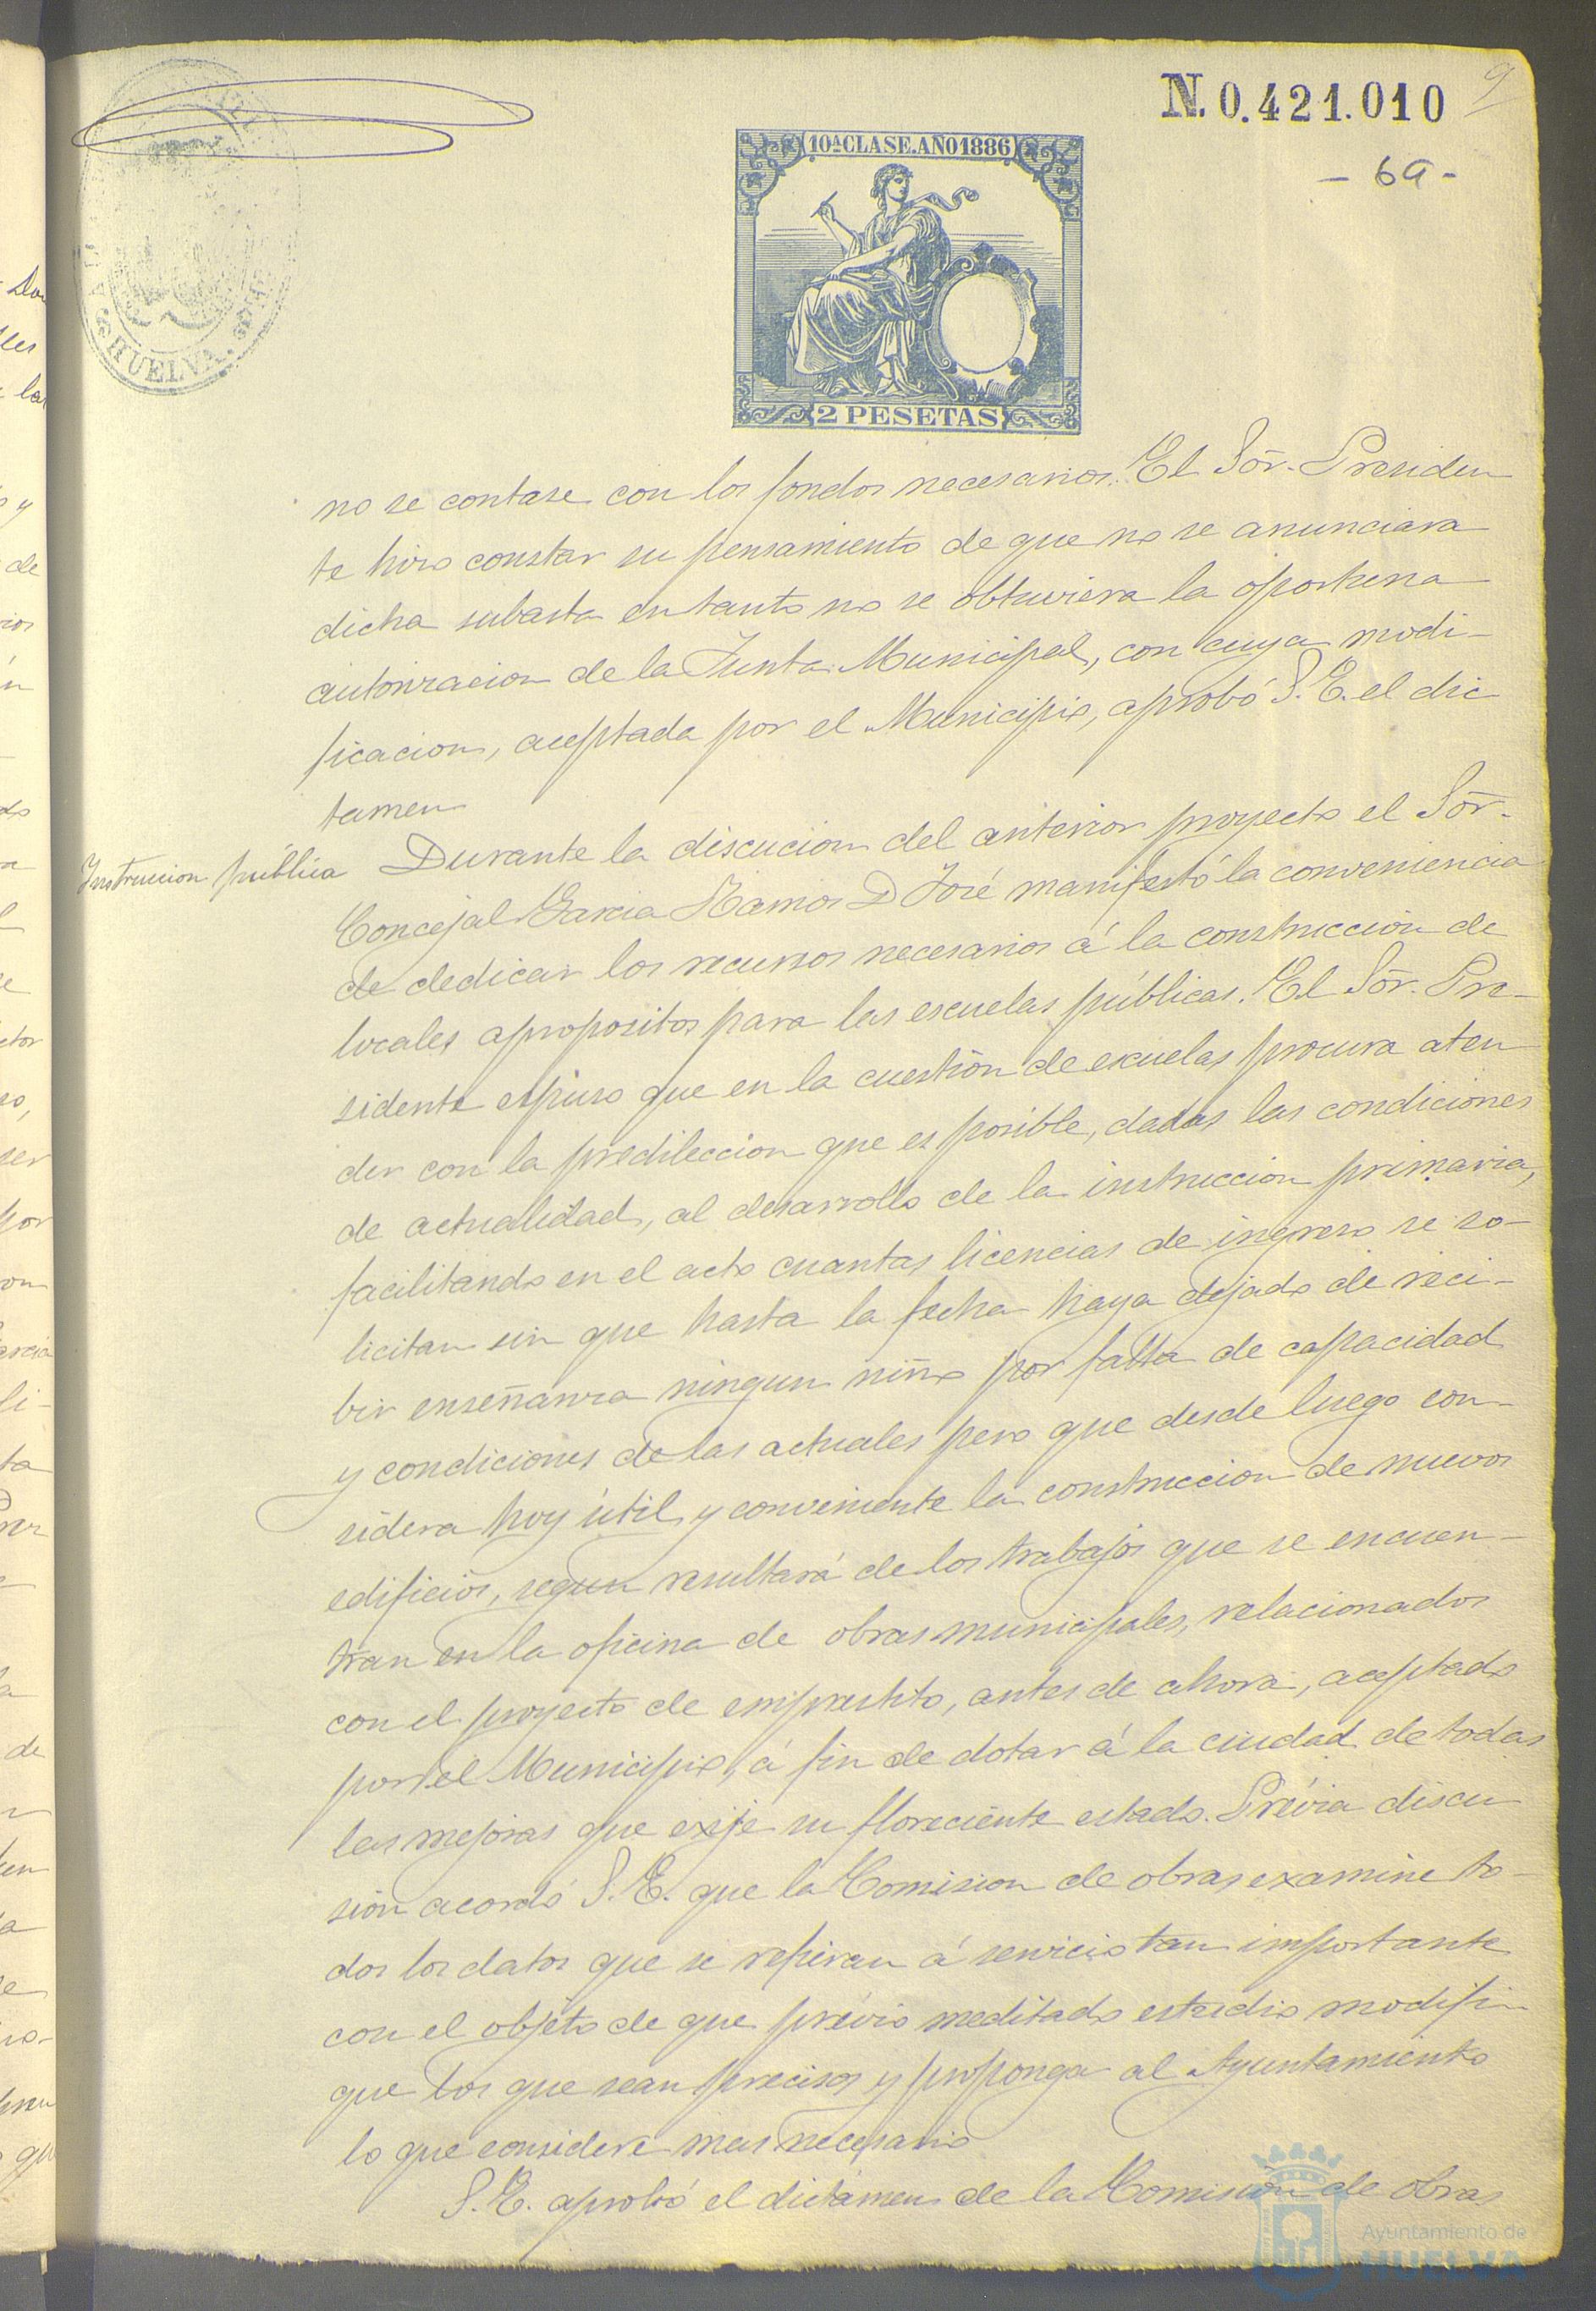 N. 0.421.010
9
- 69 -
10ª CLASE. AÑO 1886
2 PESETAS
HUELVA.
no se contase con los fondos necesarios. El Sõr. Presiden
te hizo constar su pensamiento de que no se anunciara
dicha subasta en tanto no se obtuviera la oportuna
autorizacion de la Junta Municipal, con cuya modi-
ficacion, aceptada por el Municipio, aprobó S. E. el dic
tamen
Instruccion pública
Durante la discucion del anterior proyecto el Sõr.
Concejal Garcia Ramos D José manifestó la conveniencia
de dedicar los recursos necesarios á la construccion de
locales apropositos para las escuelas públicas. El Sõr. Pre-
sidente espuso que en la cuestion de escuelas procura aten
der con la predileccion que es posible, dadas las condiciones
de actualidad, al desarrollo de la instruccion primaria,
facilitando en el acto cuantas licencias de ingreso se so-
licitan sin que hasta la fecha haya dejado de reci-
bir enseñanza ningun niño por falta de capacidad
y condiciones de las actuales pero que desde luego con-
sidera hoy útil y conveniente la construccion de nuevos
edificios, segun resultará de los trabajos que se encuen-
tran en la oficina de obras municipales, relacionados
con el proyecto de emprestito, antes de ahora, aceptado
por el Municipio, á fin de dotar á la ciudad de todas
las mejoras que exije su floreciente estado. Prévia discu
sion acordó S. E. que la Comision de obras examine to-
dos los datos que se refieran á servicio tan importante
con el objeto de que prévio meditado estudio modifi-
que los que sean precisos y proponga al Ayuntamiento
lo que considere mas necesario
S. E. aprobó el dictámen de la Comision de obras
Ayuntamiento de
HUELVA